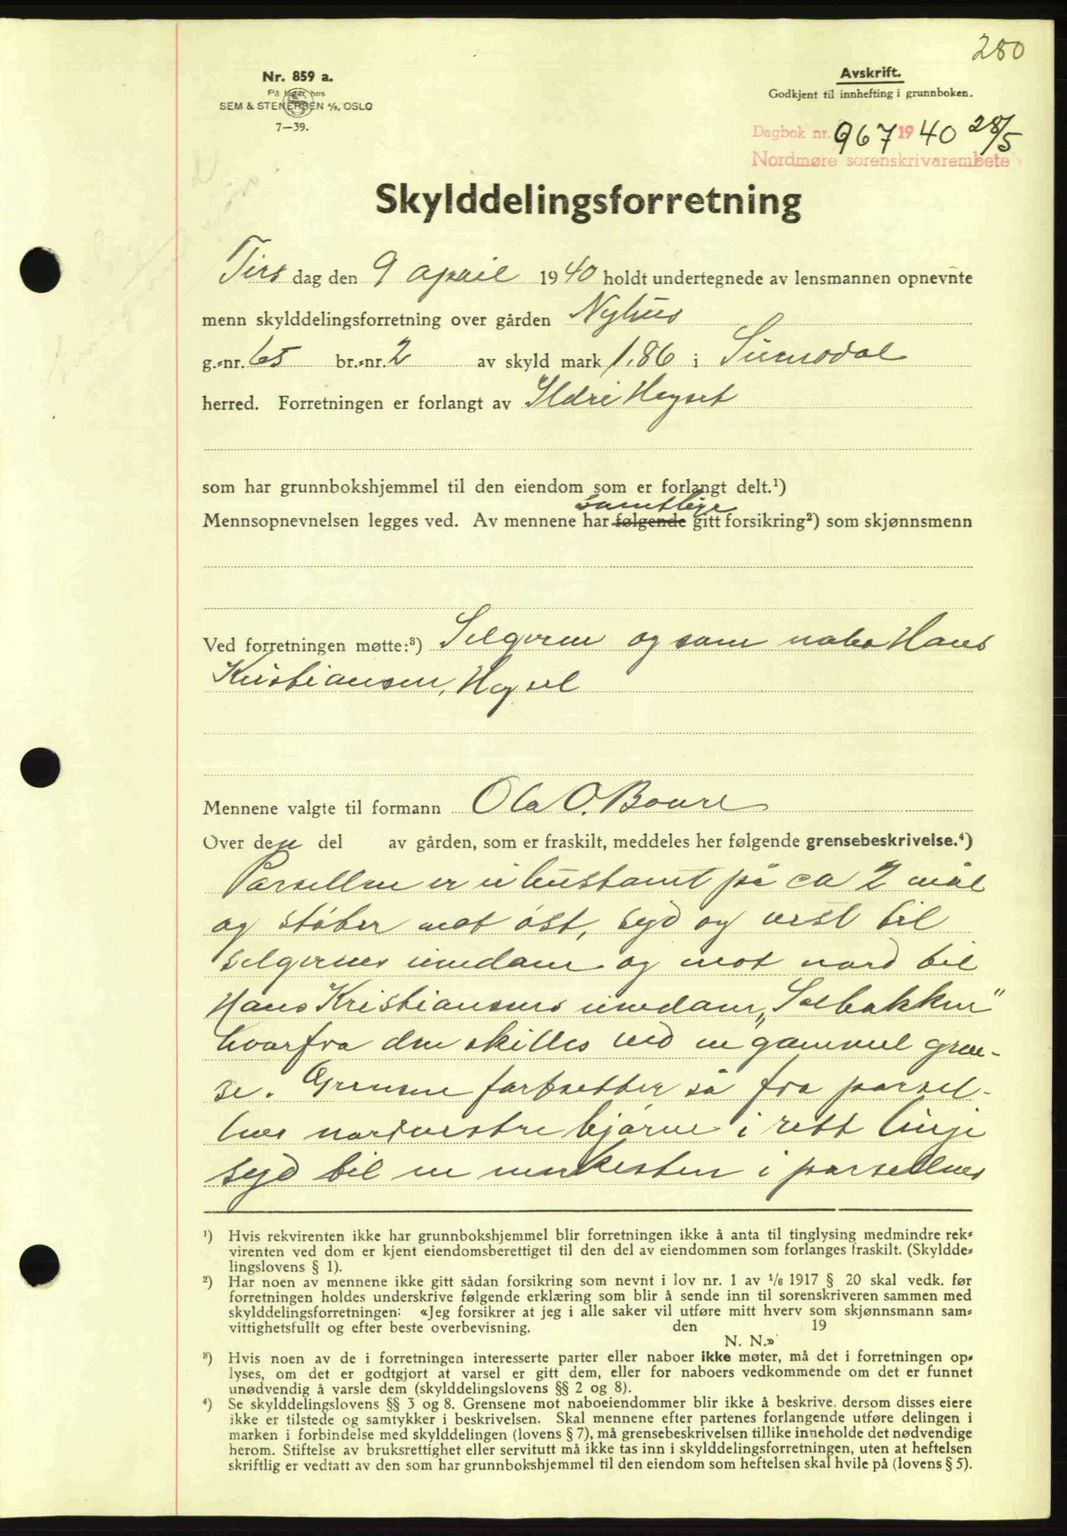 280
Nr. 859 a.
På lager hos
SEM & STENERSEN A/S, OSLO
7—39.
Avskrift.
Godkjent til innhefting i grunnboken.
Dagbok nr. 967 1940 28/5
Nordmøre sorenskrivarembete
Skylddelingsforretning
Tirsdag den 9 april 1940 holdt undertegnede av lensmannen opnevnte
menn skylddelingsforretning over gården Nyhus
g.-nr. 65 br.-nr. 2 av skyld mark 1.86 i Surnadal
herred. Forretningen er forlangt av Ildri Høyset
som har grunnbokshjemmel til den eiendom som er forlangt delt.¹)
samtlige
Mennsopnevnelsen legges ved. Av mennene har følgende gitt forsikring²) som skjønnsmenn
Ved forretningen møtte:³) Selgeren og som nabo Hans
Kristiansen,
Mennene valgte til formann Ola O.
Over denne del av gården, som er fraskilt, meddeles her følgende grensebeskrivelse.⁴)
Parsellen er ei hustomt på ca 2 mål
og støter mot øst, syd og vest til
selgernes eiendom og mot nord til
Hans Kristiansens eiendom „Solbakken"
hvorfra den skilles ved en gammel gren-
se. Grensen fortsetter så fra parsel-
lens nordvestre hjørne i rett linje
syd til en merkesten i parsellens
¹) Hvis rekvirenten ikke har grunnbokshjemmel blir forretningen ikke å anta til tinglysing medmindre rek-
virenten ved dom er kjent eiendomsberettiget til den del av eiendommen som forlanges fraskilt. (Skyldde-
lingslovens § 1).
²) Har noen av mennene ikke gitt sådan forsikring som nevnt i lov nr. 1 av 1/6 1917 § 20 skal vedk. før
forretningen holdes underskrive følgende erklæring som blir å sende inn til sorenskriveren sammen med
skylddelingsforretningen: «Jeg forsikrer at jeg i alle saker vil utføre mitt hverv som skjønnsmann sam-
vittighetsfullt og efter beste overbevisning. den 19
N. N.»
³) Hvis noen av de i forretningen interesserte parter eller naboer ikke møter, må det i forretningen op-
lyses, om det er godtgjort at varsel er gitt dem, eller for naboers vedkommende om det er funnet
unødvendig å varsle dem (skylddelingslovens §§ 2 og 8).
⁴) Se skylddelingslovens §§ 3 og 8. Grensene mot naboeiendommer blir ikke å beskrive, dersom disses eiere
ikke er tilstede og samtykker i beskrivelsen. Skal mennene efter partenes forlangende utføre delingen i
marken i forbindelse med skylddelingen (lovens § 7), må grensebeskrivelsen tillike inneholde det nødvendige
herom. Stiftelse av bruksrettighet eller servitutt må ikke tas inn i skylddelingsforretningen, uten at heftelsen
skriftlig er vedtatt av den som har grunnbokshjemmel til den eiendom som heftelsen skal hvile på (lovens § 5).